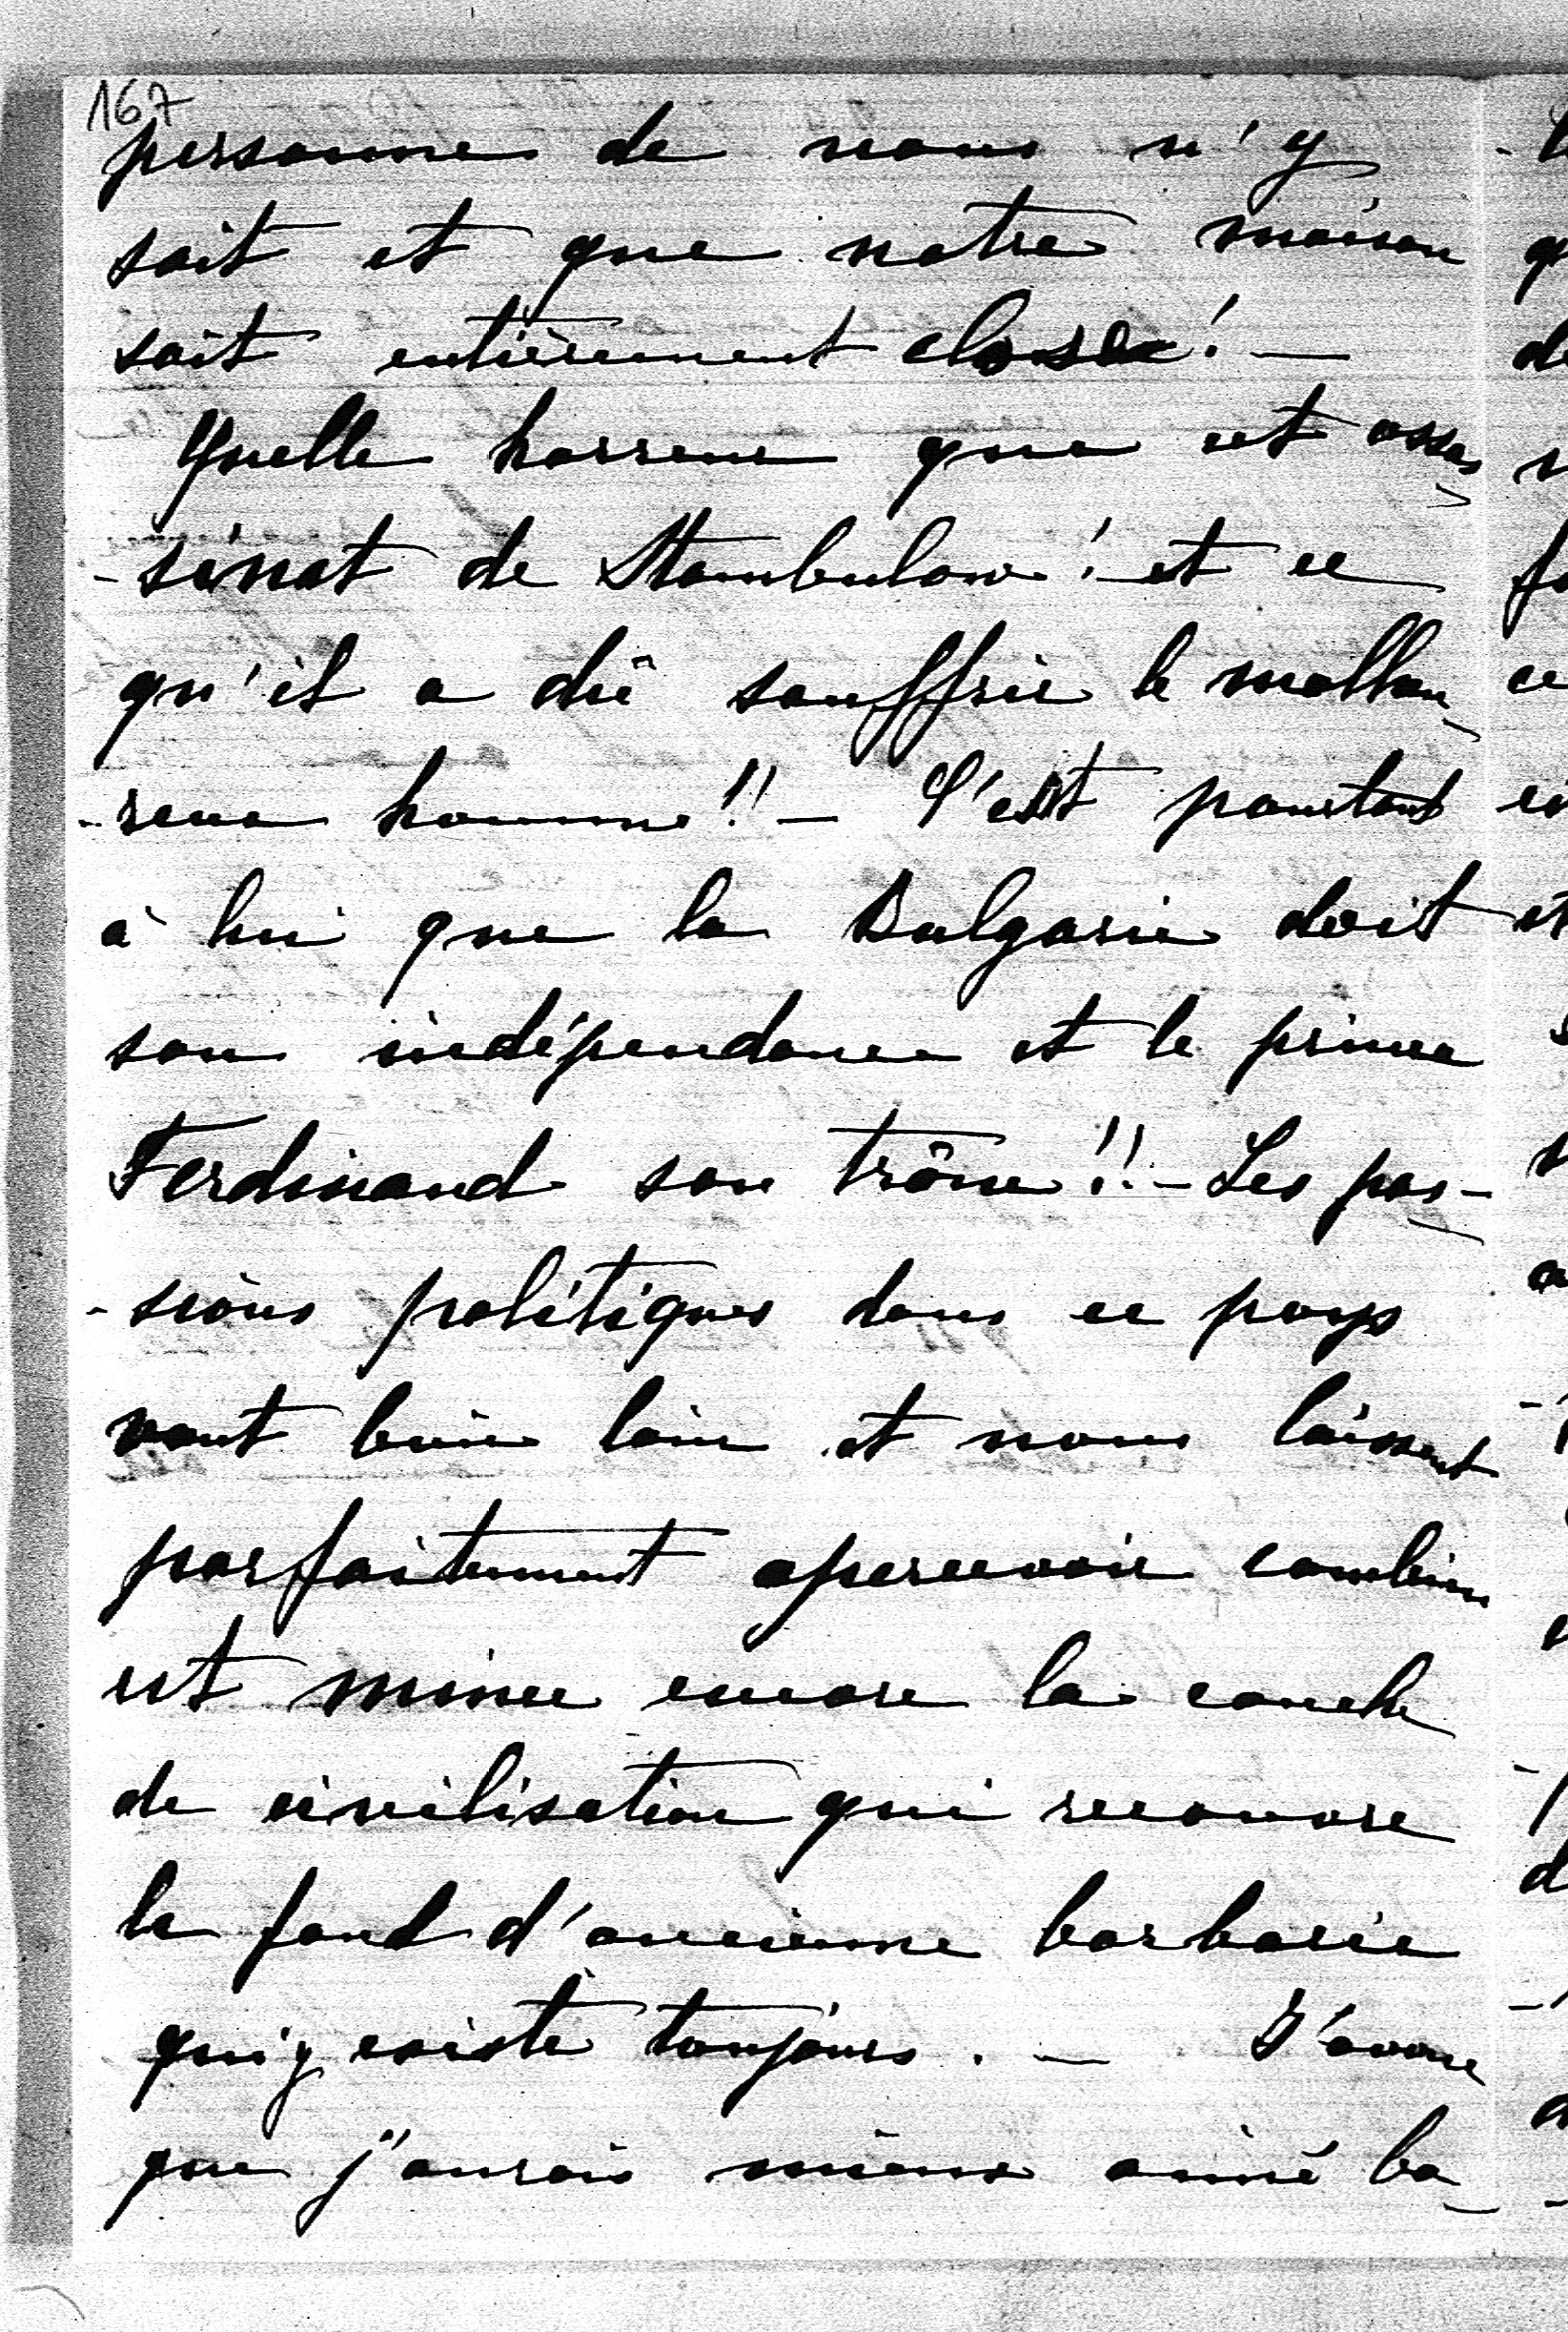 167
personne de nous n'y
soit et que notre maison
soit entièrement close! —
Quelle horreur que cet assas
-sinat de Stambulow! et ce
qu'il a dû souffrir le malheu
-reux homme!! — C'est pourtant
à lui que la Bulgarie doit
son indépendance et le prince
Ferdinand son trône!! — Les pas-
-sions politiques dans ce pays
vont bien loin et nous laissent
parfaitement apercevoir combien
est mince encore la couche
de civilisation qui recouvre
le fond d'ancienne barbarie
qui y existe toujours. — J'avoue
que j'aurais mieux aimé la